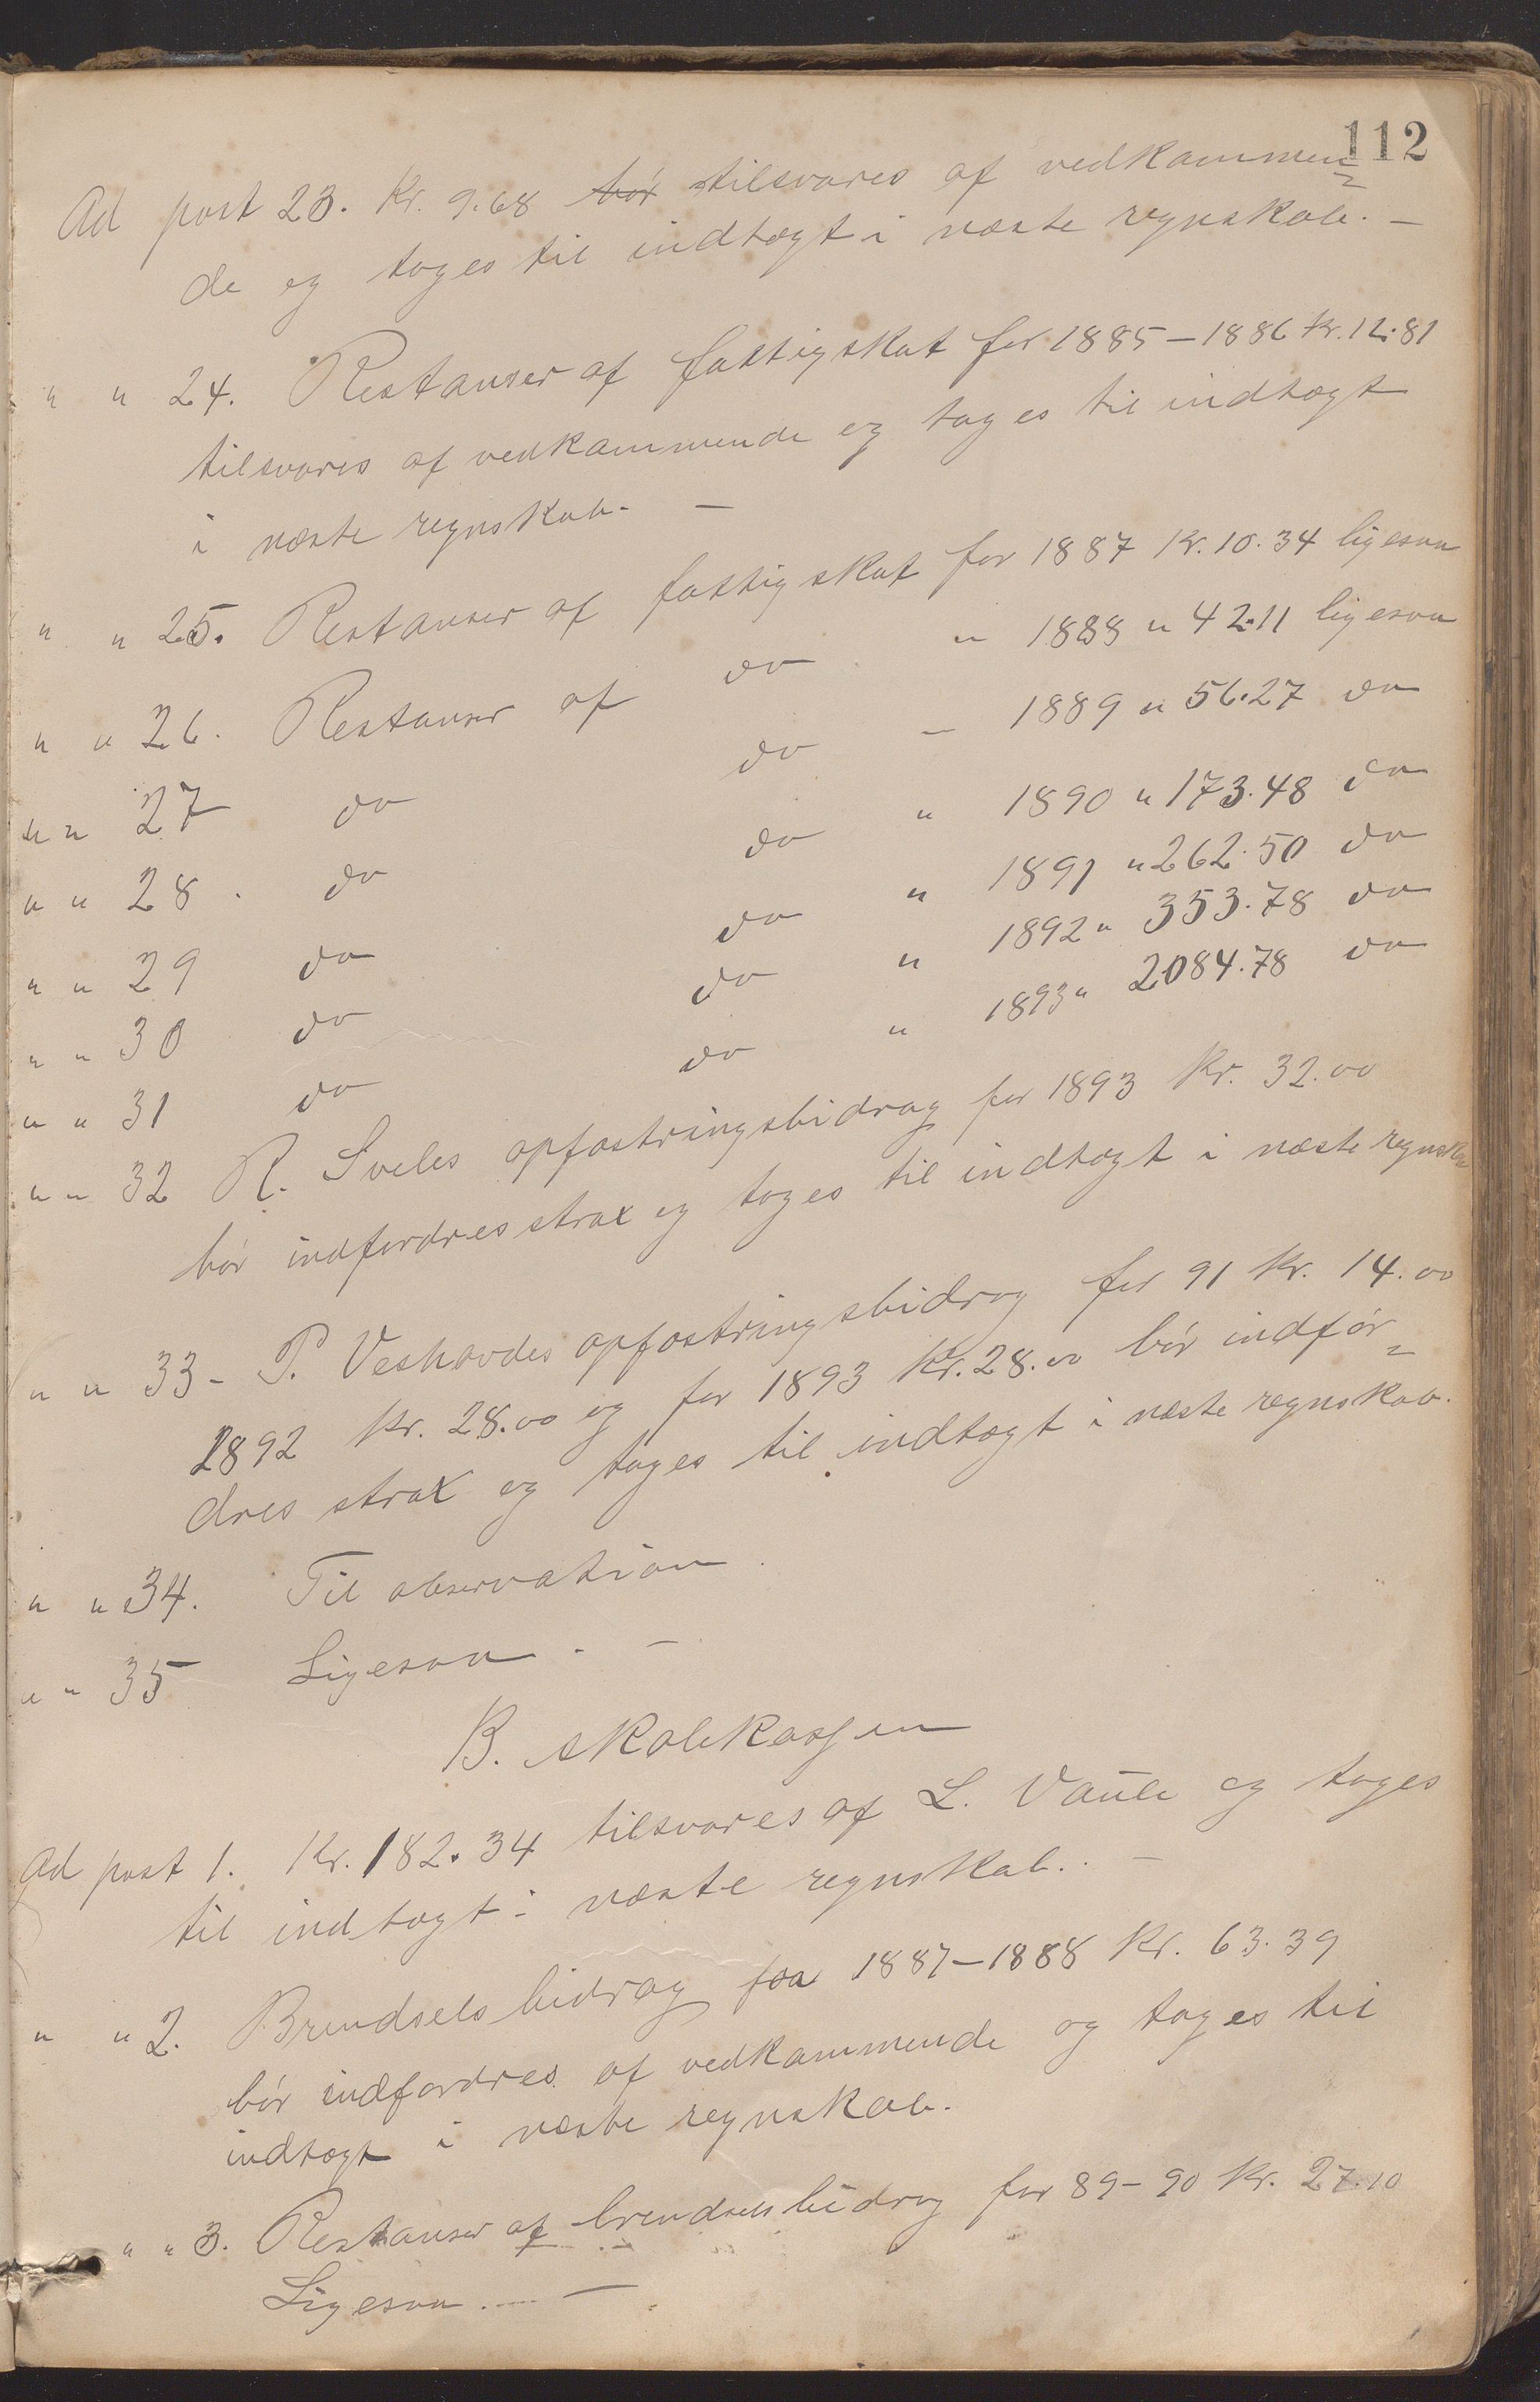 112
Ad post 23. Kr. 9.68 bör tilsvares af vedkommen=
de og tages til indtægt i næste regnskab. —
" " 24. Restanser af fattigskat for 1885 — 1886 Kr. 12.81
tilsvares af vedkommende og tages til indtægt
i næste regnskab. —
" " 25. Restanser af fattigskat for 1887 Kr. 10.34 ligesaa
" " 26. Restanser af do " 1888 " 42.11 ligesaa
" " 27 do do — 1889 " 56.27 do
" " 28. do do " 1890 " 173.48 do
" " 29 do do " 1891 " 262.50 do
" " 30 do do " 1892 " 353.78 do
" " 31 do do " 1893 " 2084.78 do
" " 32 R. Sveles opfostringsbidrag for 1893 Kr. 32.00
bör indfordres strax og tages til indtægt i næste regnskab
" " 33 - P. Veshovdes opfostringsbidrag for 91 Kr. 14.00
1892 Kr. 28.00 og for 1893 Kr. 28.00 bör indfor=
dres strax og tages til indtægt i næste regnskab.
" " 34. Til observation.
" " 35 Ligesaa. —
B. Skolekassen
Ad post 1. Kr. 182.34 tilsvares af L. Vaule og tages
til indtægt i næste regnskab. —
" " 2. Brendselsbidrag fra 1887—1888 Kr. 63.39
bör indfordres af vedkommende og tages til
indtægt i næste regnskab.
" " 3. Restanser af brendselsbidrag for 89-90 Kr. 27.10
Ligesaa. —